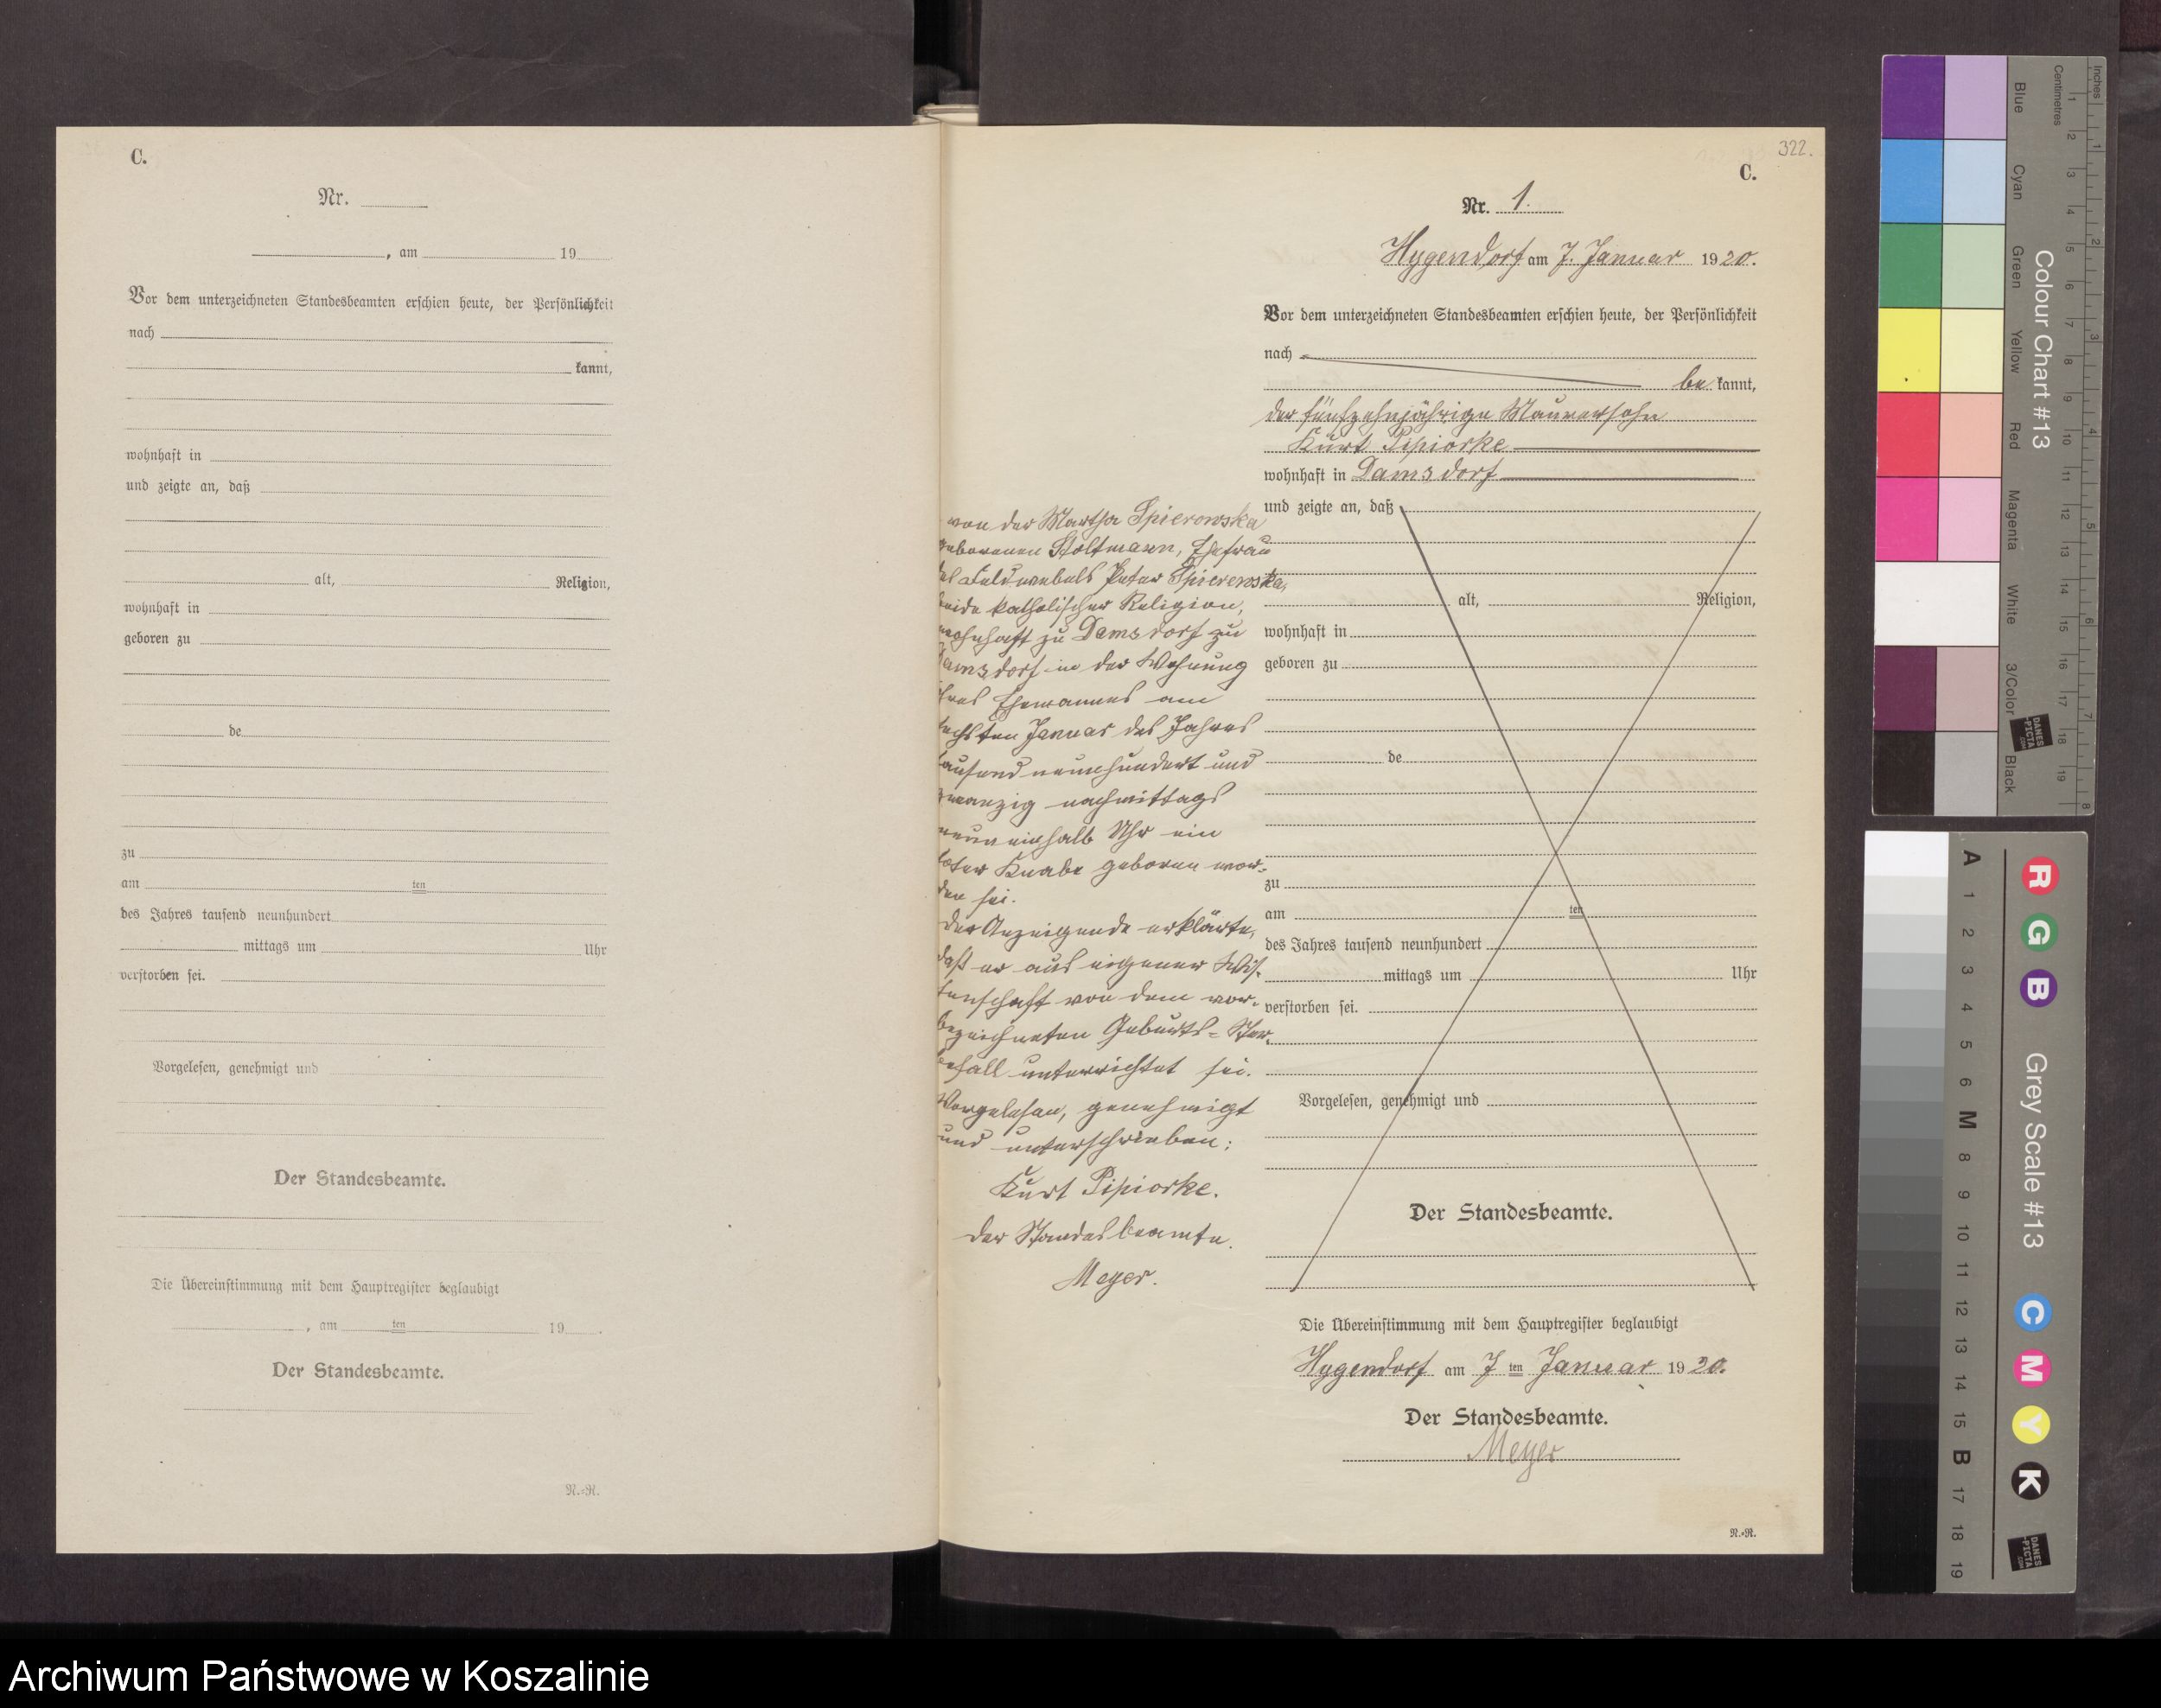 C.
Nr.
, am 19
Vor dem unterzeichneten Standesbeamten erschien heute, der Persönlichkeit
nach
kannt,
wohnhaft in
und zeigte an, daß
alt, Religion,
wohnhaft in
geboren zu
de
zu
am ten
des Jahres tausend neunhundert
mittags um Uhr
verstorben sei.
Vorgelesen, genehmigt und
Der Standesbeamte.
Die Übereinstimmung mit dem Hauptregister beglaubigt
, am ten 19
Der Standesbeamte.
N.-R.
322.
C.
Nr. 1.
Hygendorf am 7. Januar 1920.
Vor dem unterzeichneten Standesbeamten erschien heute, der Persönlichkeit
nach
be kannt,
der fünfzehnjährige Maurersohn
Kurt Pipiorke
wohnhaft in Damsdorf
und zeigte an, daß
alt, Religion,
wohnhaft in
geboren zu
de
zu
am ten
des Jahres tausend neunhundert
mittags um Uhr
verstorben sei.
Vorgelesen, genehmigt und
Der Standesbeamte.
von der Martha Spierowska
geborenen Stoltmann, Ehefrau
des Feldwebels Peter Spierewska,
beide katholischer Religion,
wohnhaft zu Damsdorf zu
Damsdorf in der Wohnung
ihres Ehemannes am
sechsten Januar des Jahres
tausend neunhundert und
zwanzig nachmittags
neun einhalb Uhr ein
toter Knabe geboren wor-
den sei.
Der Anzeigende erklärte,
daß er aus eigener Wis-
senschaft von dem vor-
bezeichneten Geburts- Ster-
befall unterrichtet sei.
Vorgelesen, genehmigt
und unterschrieben:
Kurt Pipiorke.
Der Standesbeamte.
Meyer.
Die Übereinstimmung mit dem Hauptregister beglaubigt
Hygendorf am 7 ten Januar 1920.
Der Standesbeamte.
Meyer
N.-R.
Colour Chart #13
Blue
Cyan
Green
Yellow
Red
Magenta
White
3/Color
Black
Centimetres
Inches
1 2 3 4 5 6 7 8 9 10 11 12 13 14 15 16 17 18 19
1 2 3 4 5 6 7 8
DANES
-PICTA
.COM
Grey Scale #13
R G B C M Y K
A 1 2 3 4 5 6 M 8 9 10 11 12 13 14 15 B 17 18 19
DANES
-PICTA
.COM
Archiwum Państwowe w Koszalinie